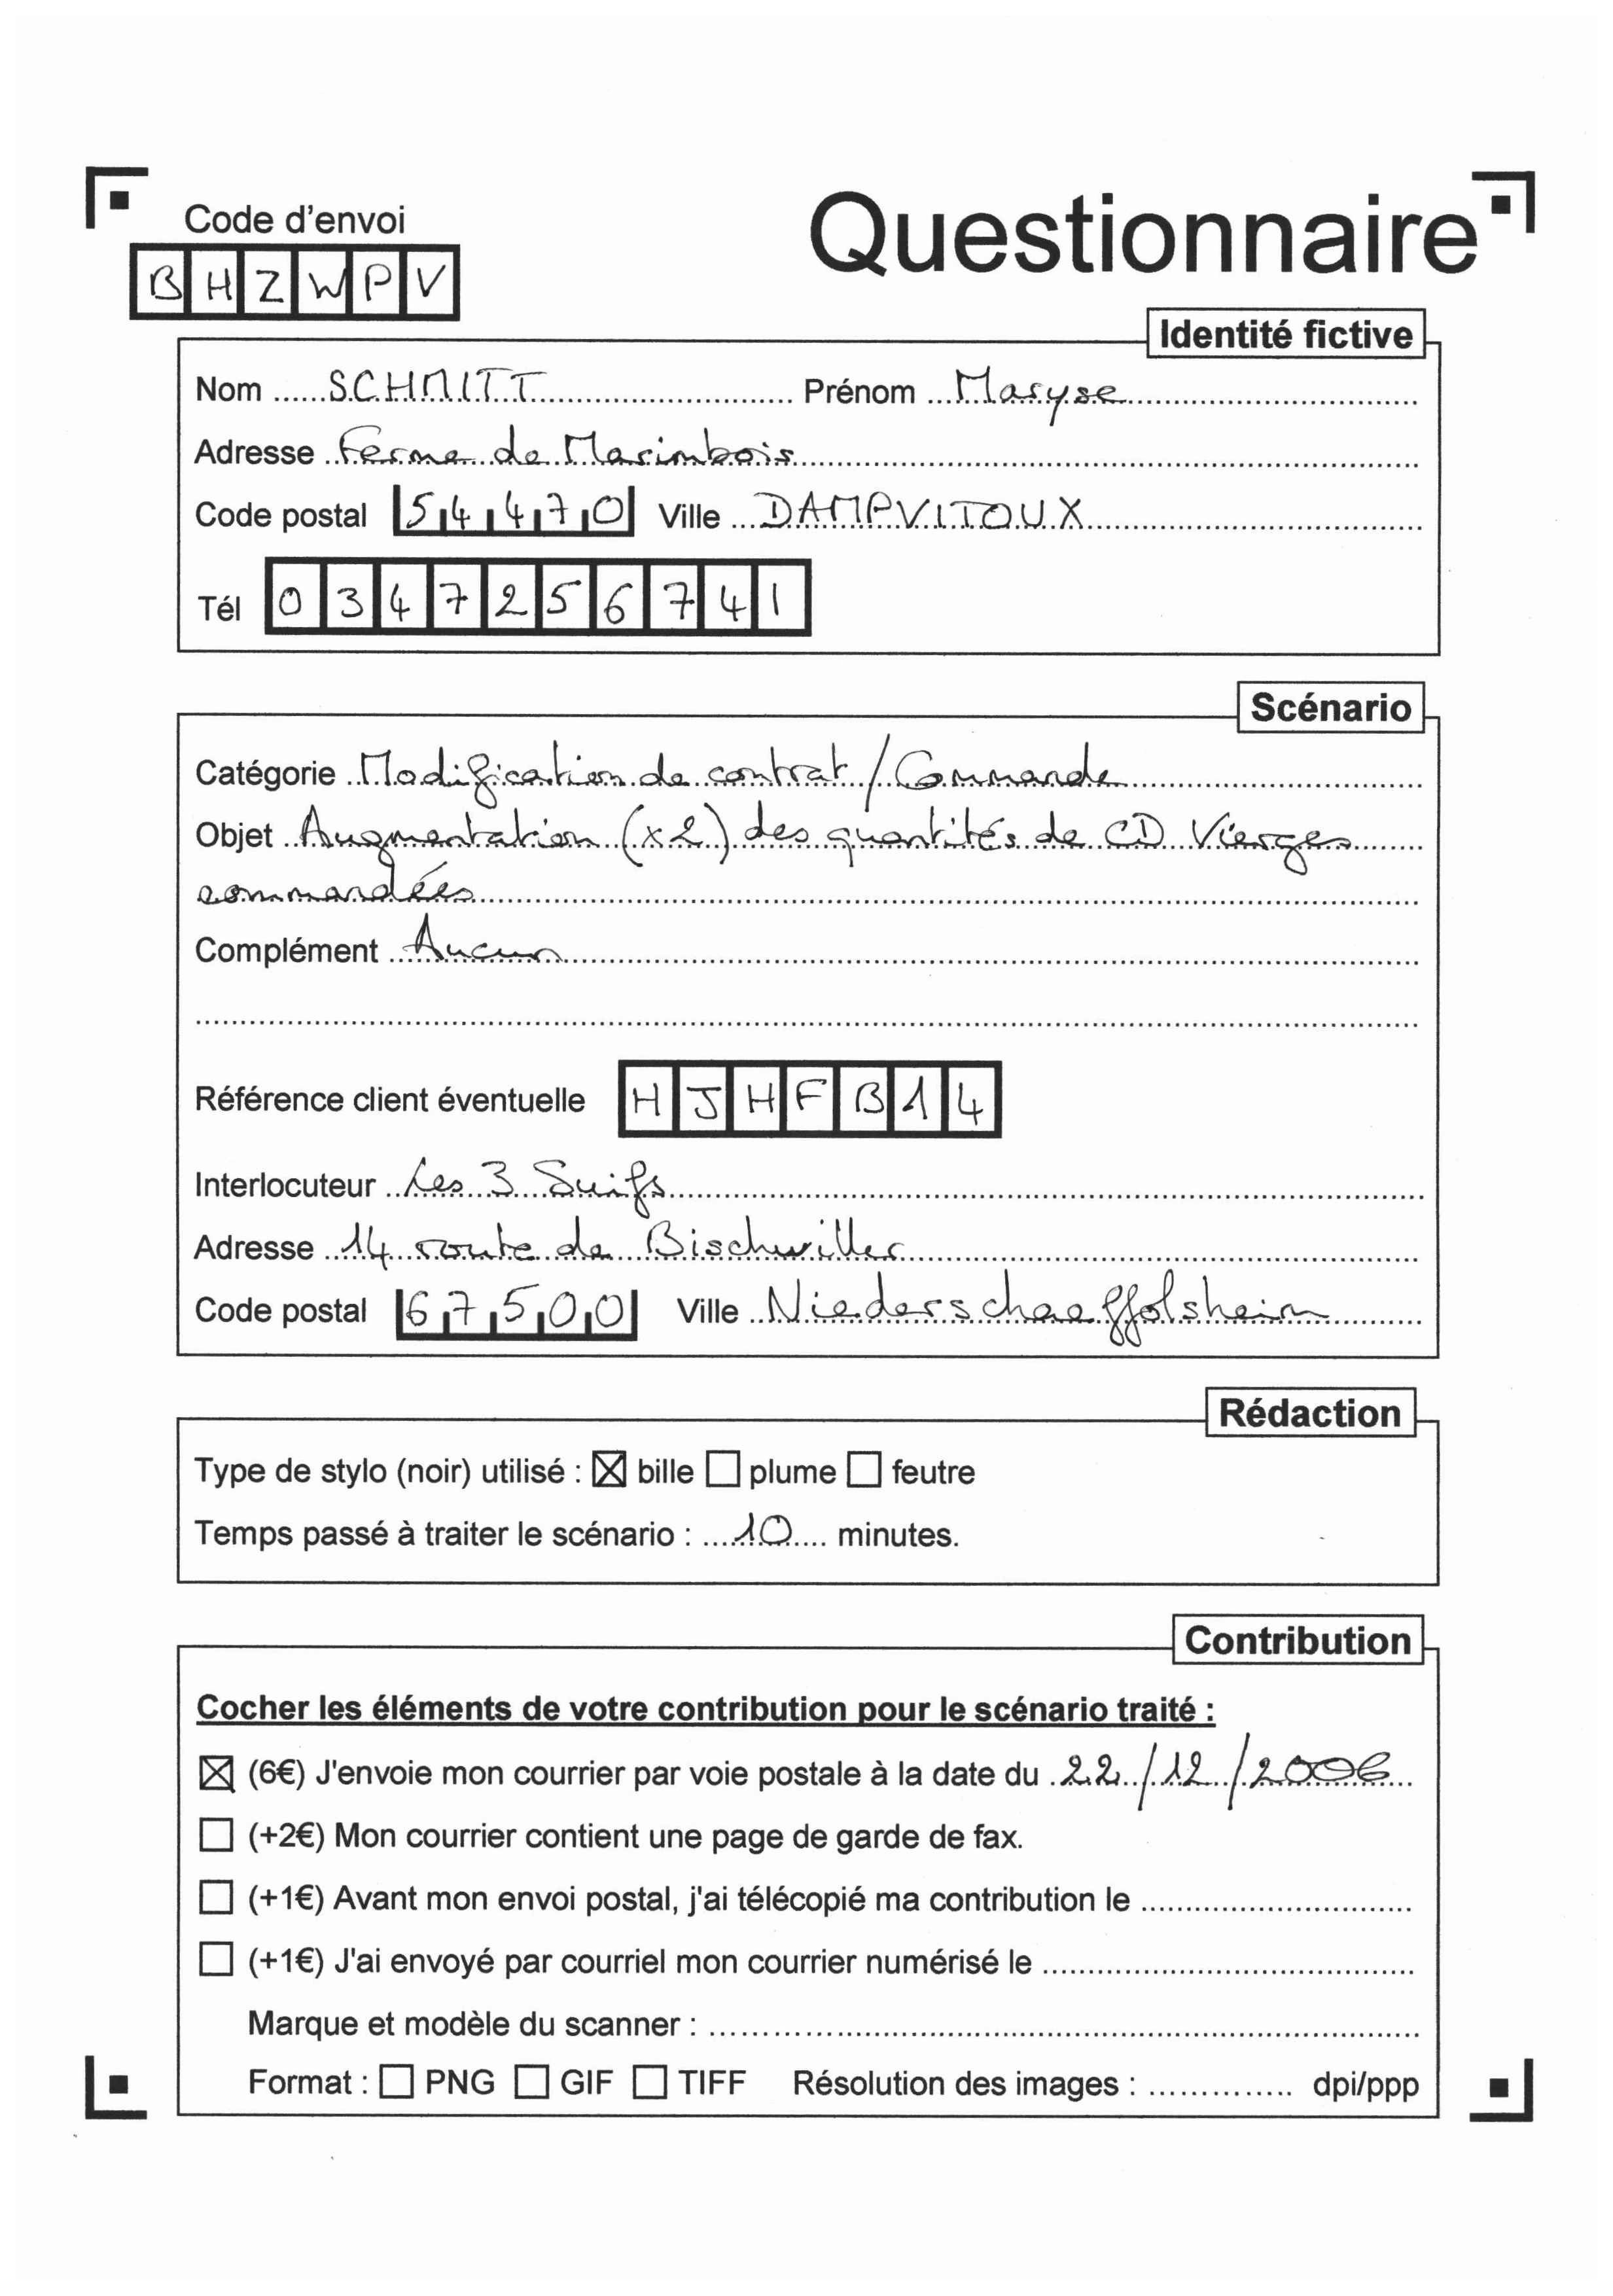 Code d'envoi
Questionnaire
BHZWPV
Identité fictive
Nom SCHMITT Prénom Maryse
Adresse Ferme de Marimbois
Code postal 54470 Ville DAMPVITOUX
Tél 0347256741
Scénario
Catégorie Modification de contrat / Commande
Objet Augmentation (x2) des quantités de CD Vierges
commandées
Complément Aucun
Référence client éventuelle HJHFB14
Interlocuteur Les 3 Suifs
Adresse 14 route de Bischwiller
Code postal 67500 Ville Niederschaeffolsheim
Rédaction
Type de stylo (noir) utilisé : ☒ bille ☐ plume ☐ feutre
Temps passé à traiter le scénario : 10 minutes.
Contribution
Cocher les éléments de votre contribution pour le scénario traité :
☒ (6€) J'envoie mon courrier par voie postale à la date du 22/12/2006
☐ (+2€) Mon courrier contient une page de garde de fax.
☐ (+1€) Avant mon envoi postal, j'ai télécopié ma contribution le
☐ (+1€) J'ai envoyé par courriel mon courrier numérisé le
Marque et modèle du scanner :
Format : ☐ PNG ☐ GIF ☐ TIFF Résolution des images : dpi/ppp